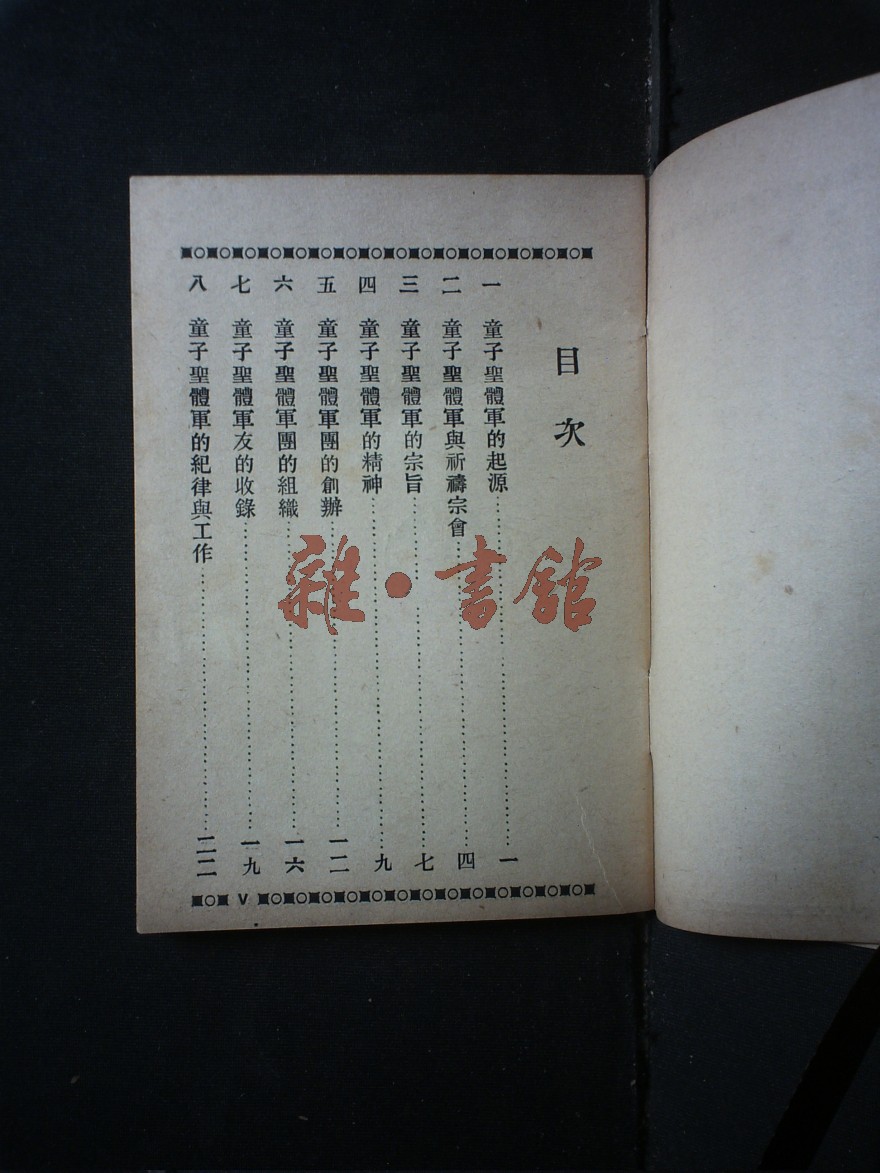 目次
一 童子聖體軍的起源⋯⋯一
二 童子聖體軍與祈禱宗會⋯⋯四
三 童子聖體軍的宗旨⋯⋯七
四 童子聖體軍的精神⋯⋯九
五 童子聖體軍團的創辦⋯⋯一二
六 童子聖體軍團的組織⋯⋯一六
七 童子聖體軍友的收錄⋯⋯一九
八 童子聖體軍的紀律與工作⋯⋯二二
V
雜•書館